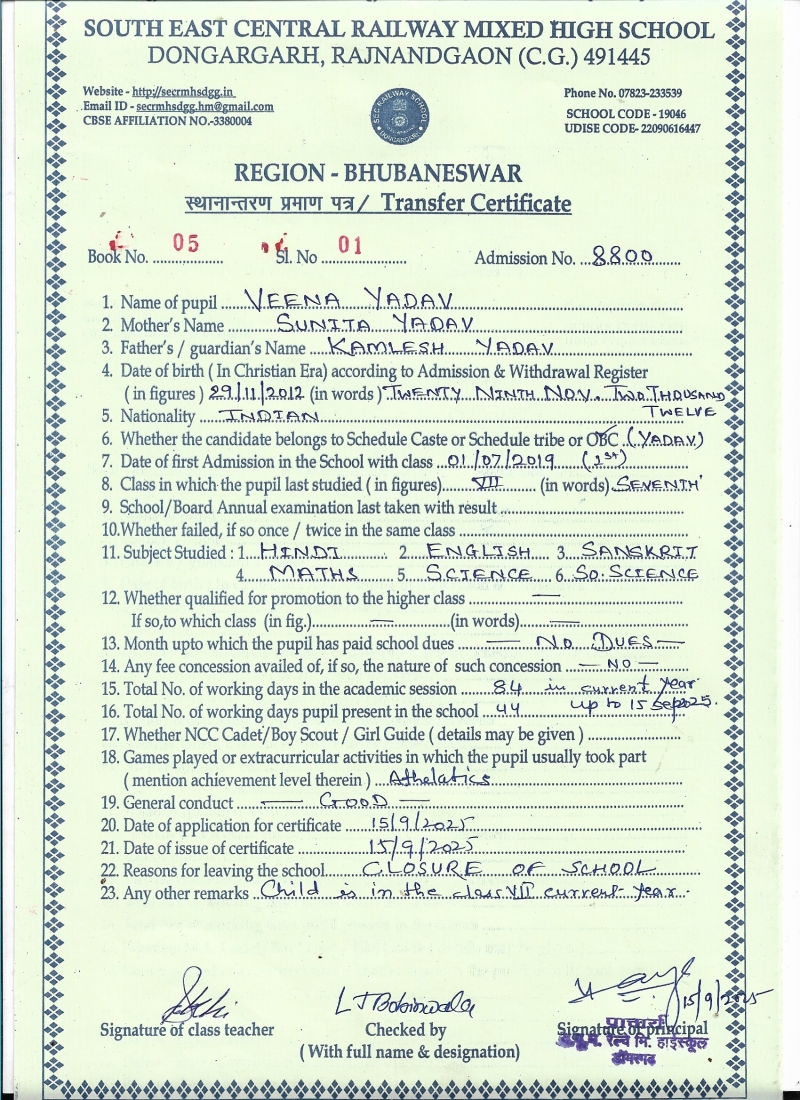 SOUTH EAST CENTRAL RAILWAY MIXED HIGH SCHOOL
DONGARGARH, RAJNANDGAON (C.G.) 491445
Website - http://secrmhsdgg.in
Email ID - secrmhsdgg.hm@gmail.com
CBSE AFFILIATION NO.-3380004
SEC RAILWAY SCHOOL
DONGARGARH
Phone No. 07823-233539
SCHOOL CODE - 19046
UDISE CODE- 22090616447
REGION - BHUBANESWAR
स्थानान्तरण प्रमाण पत्र / Transfer Certificate
Book No. 05 Sl. No 01 Admission No. 8800
1. Name of pupil VEENA YADAV
2. Mother's Name SUNITA YADAV
3. Father's / guardian's Name KAMLESH YADAV
4. Date of birth ( In Christian Era) according to Admission & Withdrawal Register
( in figures ) 29/11/2012 (in words ) TWENTY NINTH NOV. TWO THOUSAND
TWELVE
5. Nationality INDIAN
6. Whether the candidate belongs to Schedule Caste or Schedule tribe or OBC (YADAV)
7. Date of first Admission in the School with class 01/07/2019 (1st)
8. Class in which the pupil last studied ( in figures) VII (in words) SEVENTH
9. School/Board Annual examination last taken with result
10.Whether failed, if so once / twice in the same class
11. Subject Studied : 1. HINDI 2. ENGLISH 3. SANSKRIT
4. MATHS 5. SCIENCE 6. SO. SCIENCE
12. Whether qualified for promotion to the higher class —
If so,to which class (in fig.) — (in words) —
13. Month upto which the pupil has paid school dues — NO DUES —
14. Any fee concession availed of, if so, the nature of such concession — NO —
15. Total No. of working days in the academic session 84 in current year
16. Total No. of working days pupil present in the school 44 up to 15 Sep 2025.
17. Whether NCC Cadet/Boy Scout / Girl Guide ( details may be given )
18. Games played or extracurricular activities in which the pupil usually took part
( mention achievement level therein ) Athelatics
19. General conduct — GOOD —
20. Date of application for certificate 15/9/2025
21. Date of issue of certificate 15/9/2025
22. Reasons for leaving the school CLOSURE OF SCHOOL
23. Any other remarks Child is in the class VII current year.
15/9/2025
Signature of class teacher Checked by Signature of principal
( With full name & designation)
प्राचार्य
द.पू.म. रेल्वे मि. हाईस्कूल
डोंगरगढ़